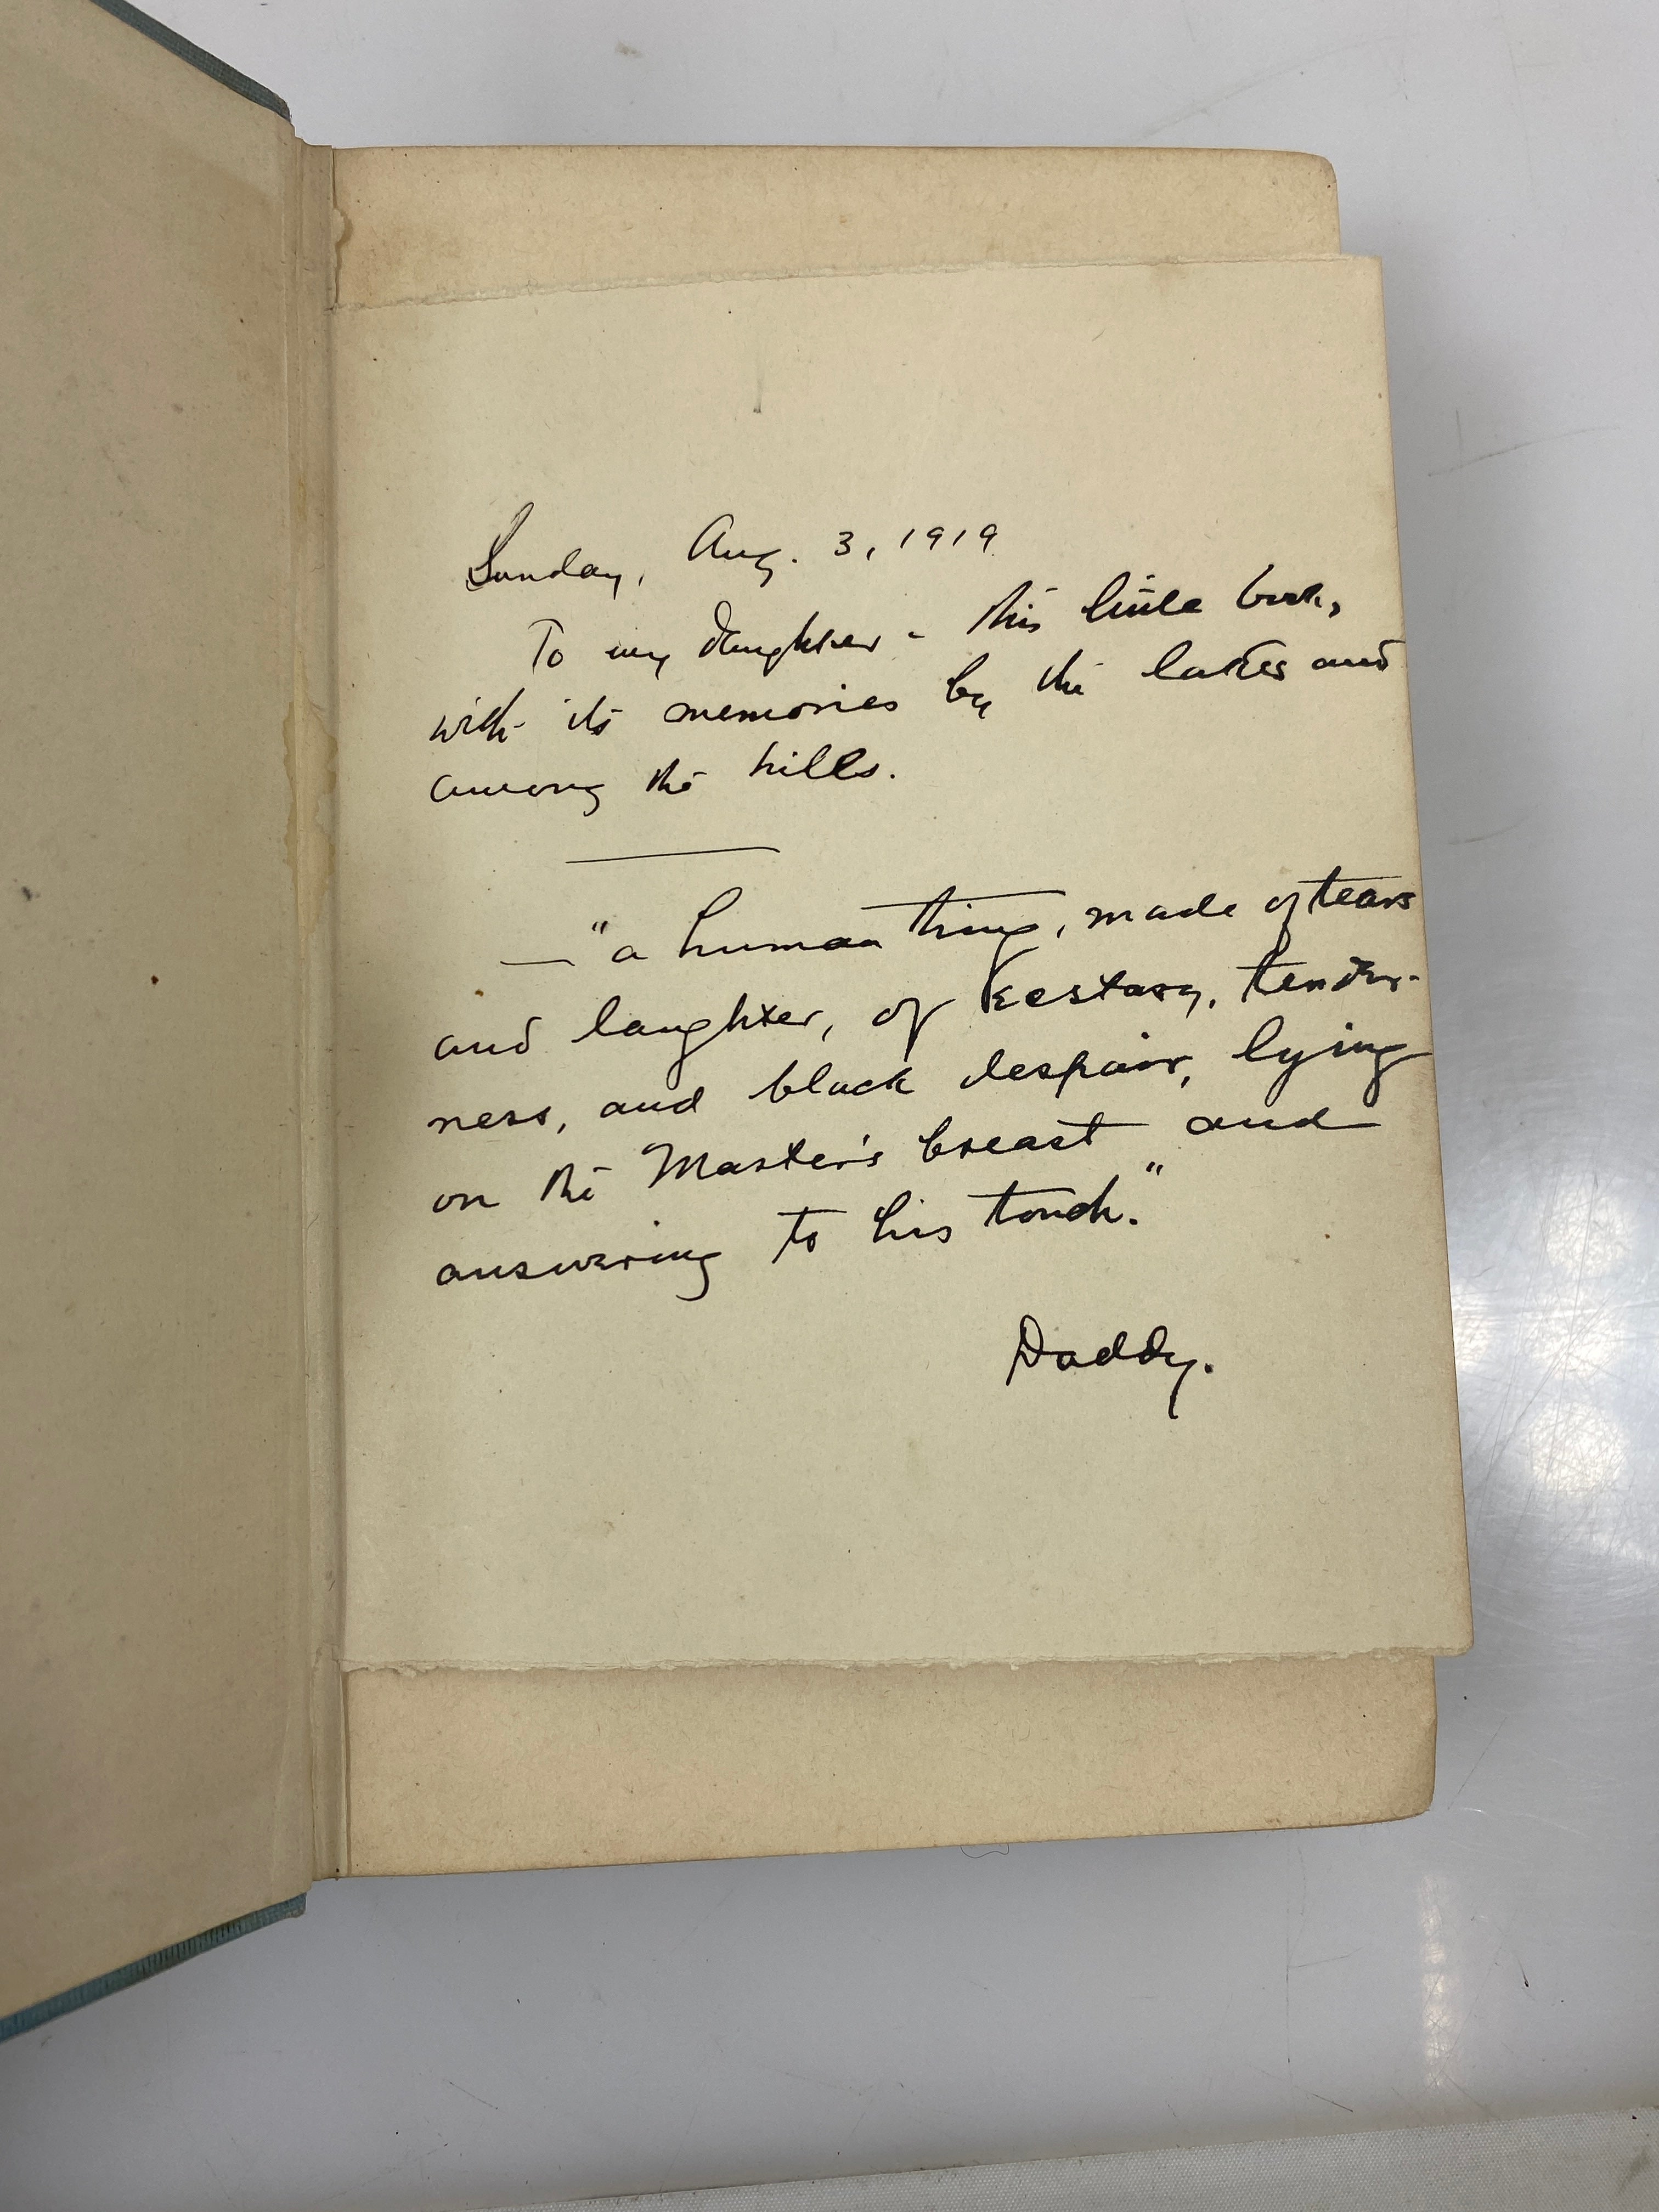 Sunday, Aug. 3, 1919
To my daughter - this little book,
with its memories by the lakes and
among the hills.
— "a human thing, made of tears
and laughter, of ecstasy, tender-
ness, and black despair, lying
on the Master's breast and
answering to his touch."
Daddy.